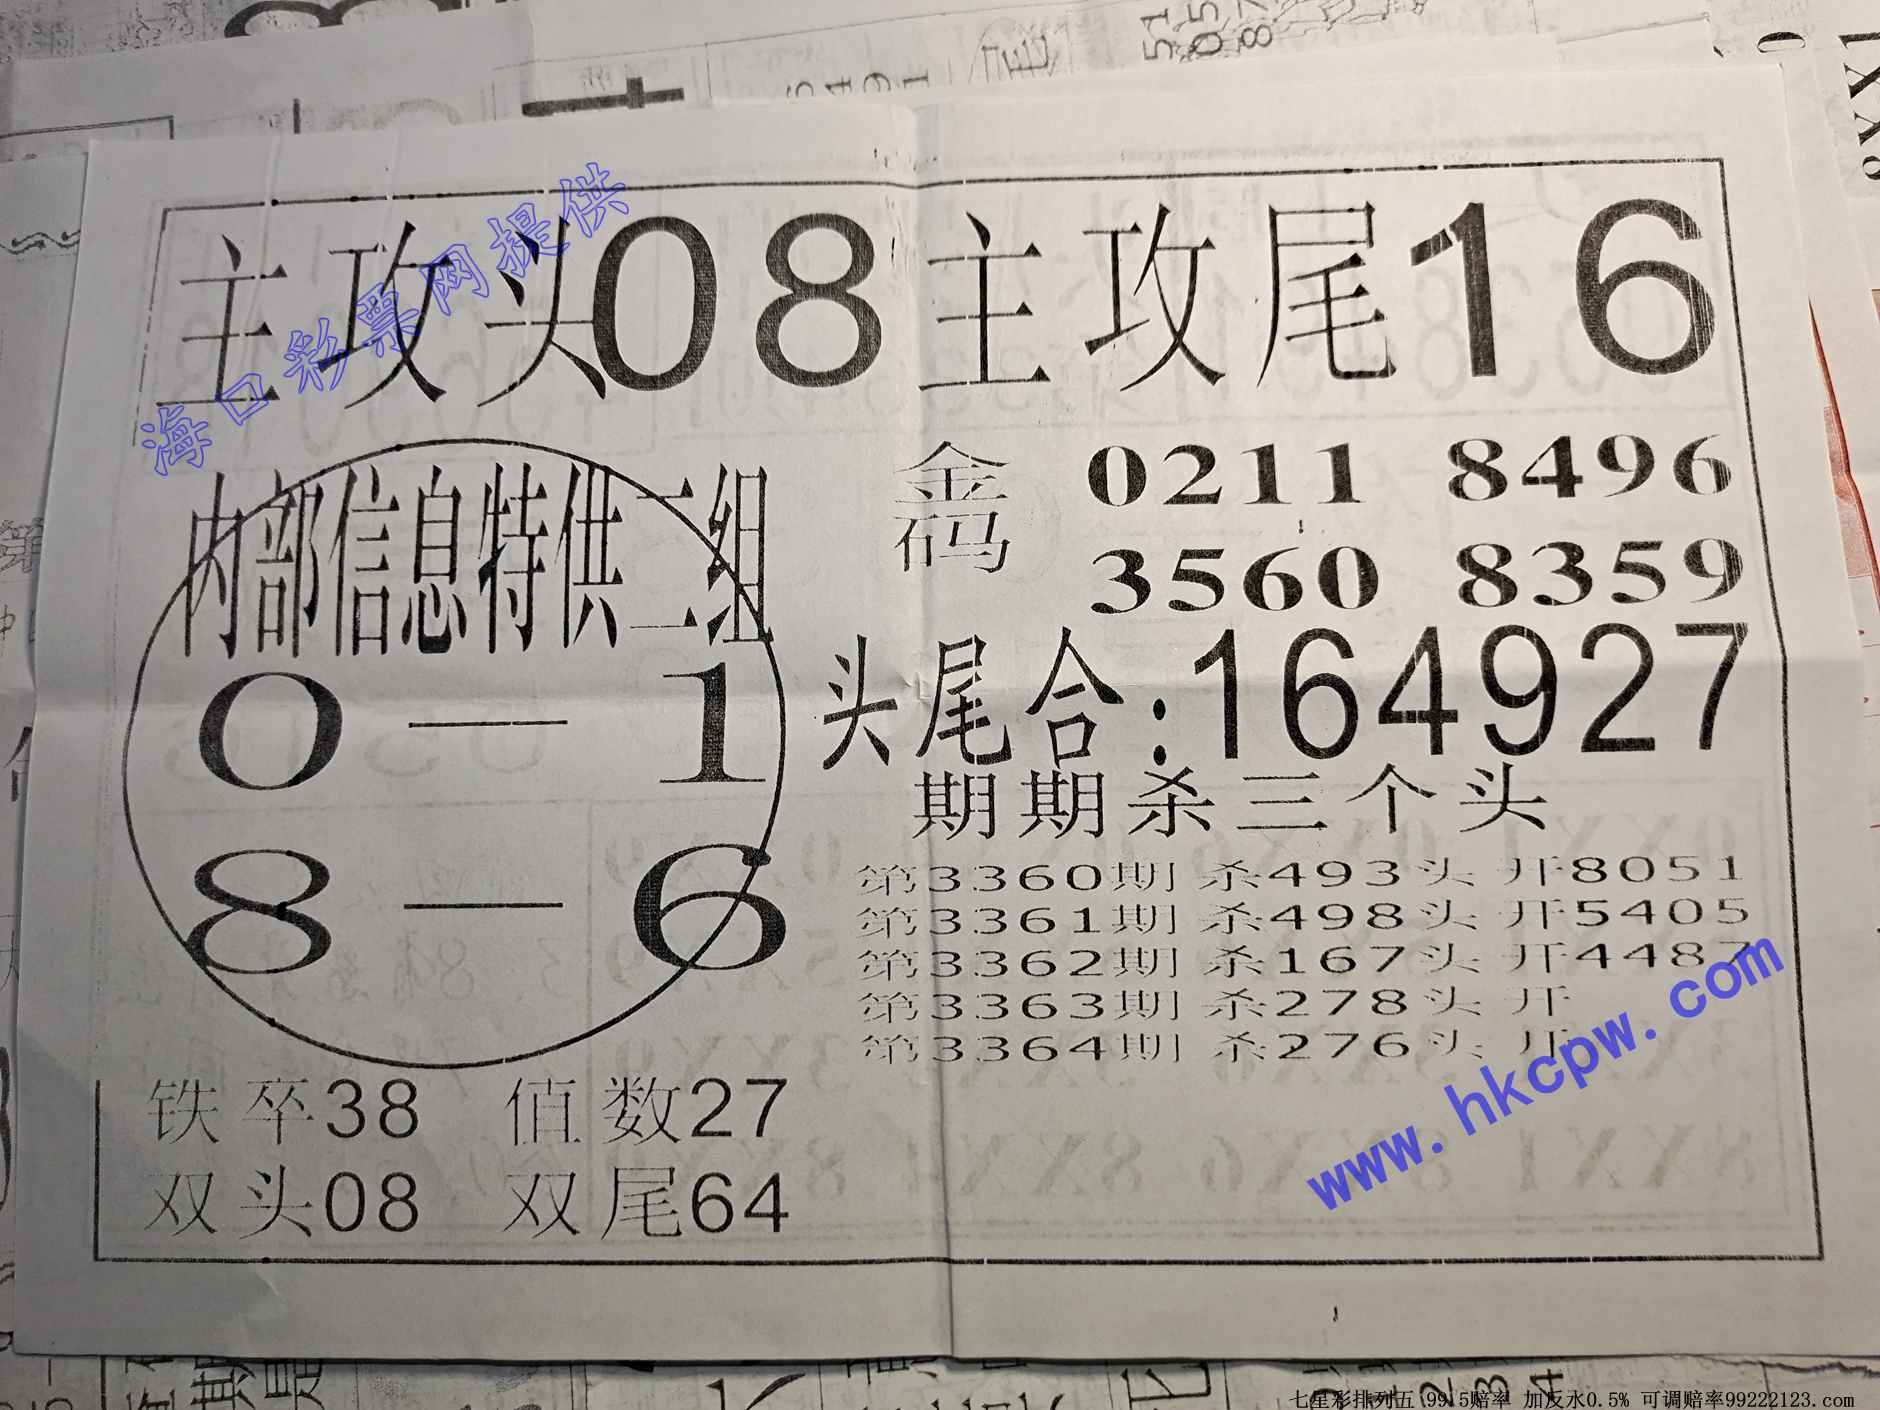 主攻头08 主攻尾16
海口彩票网提供
内部信息特供二组
0—1
8—6
金码
0211 8496
3560 8359
头尾合:164927
期期杀三个头
第3360期 杀493头 开8051
第3361期 杀498头 开5405
第3362期 杀167头 开4487
第3363期 杀278头 开
第3364期 杀276头 开
铁卒38 值数27
双头08 双尾64
www.hkcpw.com
七星彩排列五 9915赔率 加反水0.5% 可调赔率99222123.com